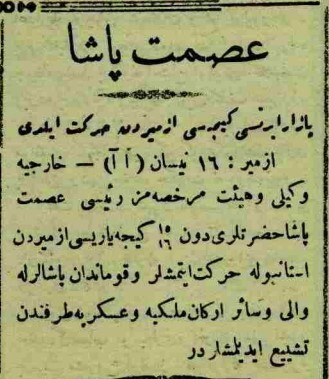 عصمت پاشا
پازار ايرتسی كيجه‌سی ازميردن حركت ايلدی
ازمير : ١٦ نيسان ( ا آ ) — خارجيه
وكيلی وهيئت مرخصه‌مز رئيسی عصمت
پاشا حضرتلری دون ١٥/١٦ كيجه ياريسی ازميردن
استانبوله حركت ايتمشلر و قوماندان پاشالرله
والی وسائر اركان ملكيه و عسكريه طرفندن
تشييع ايديلمشلردر